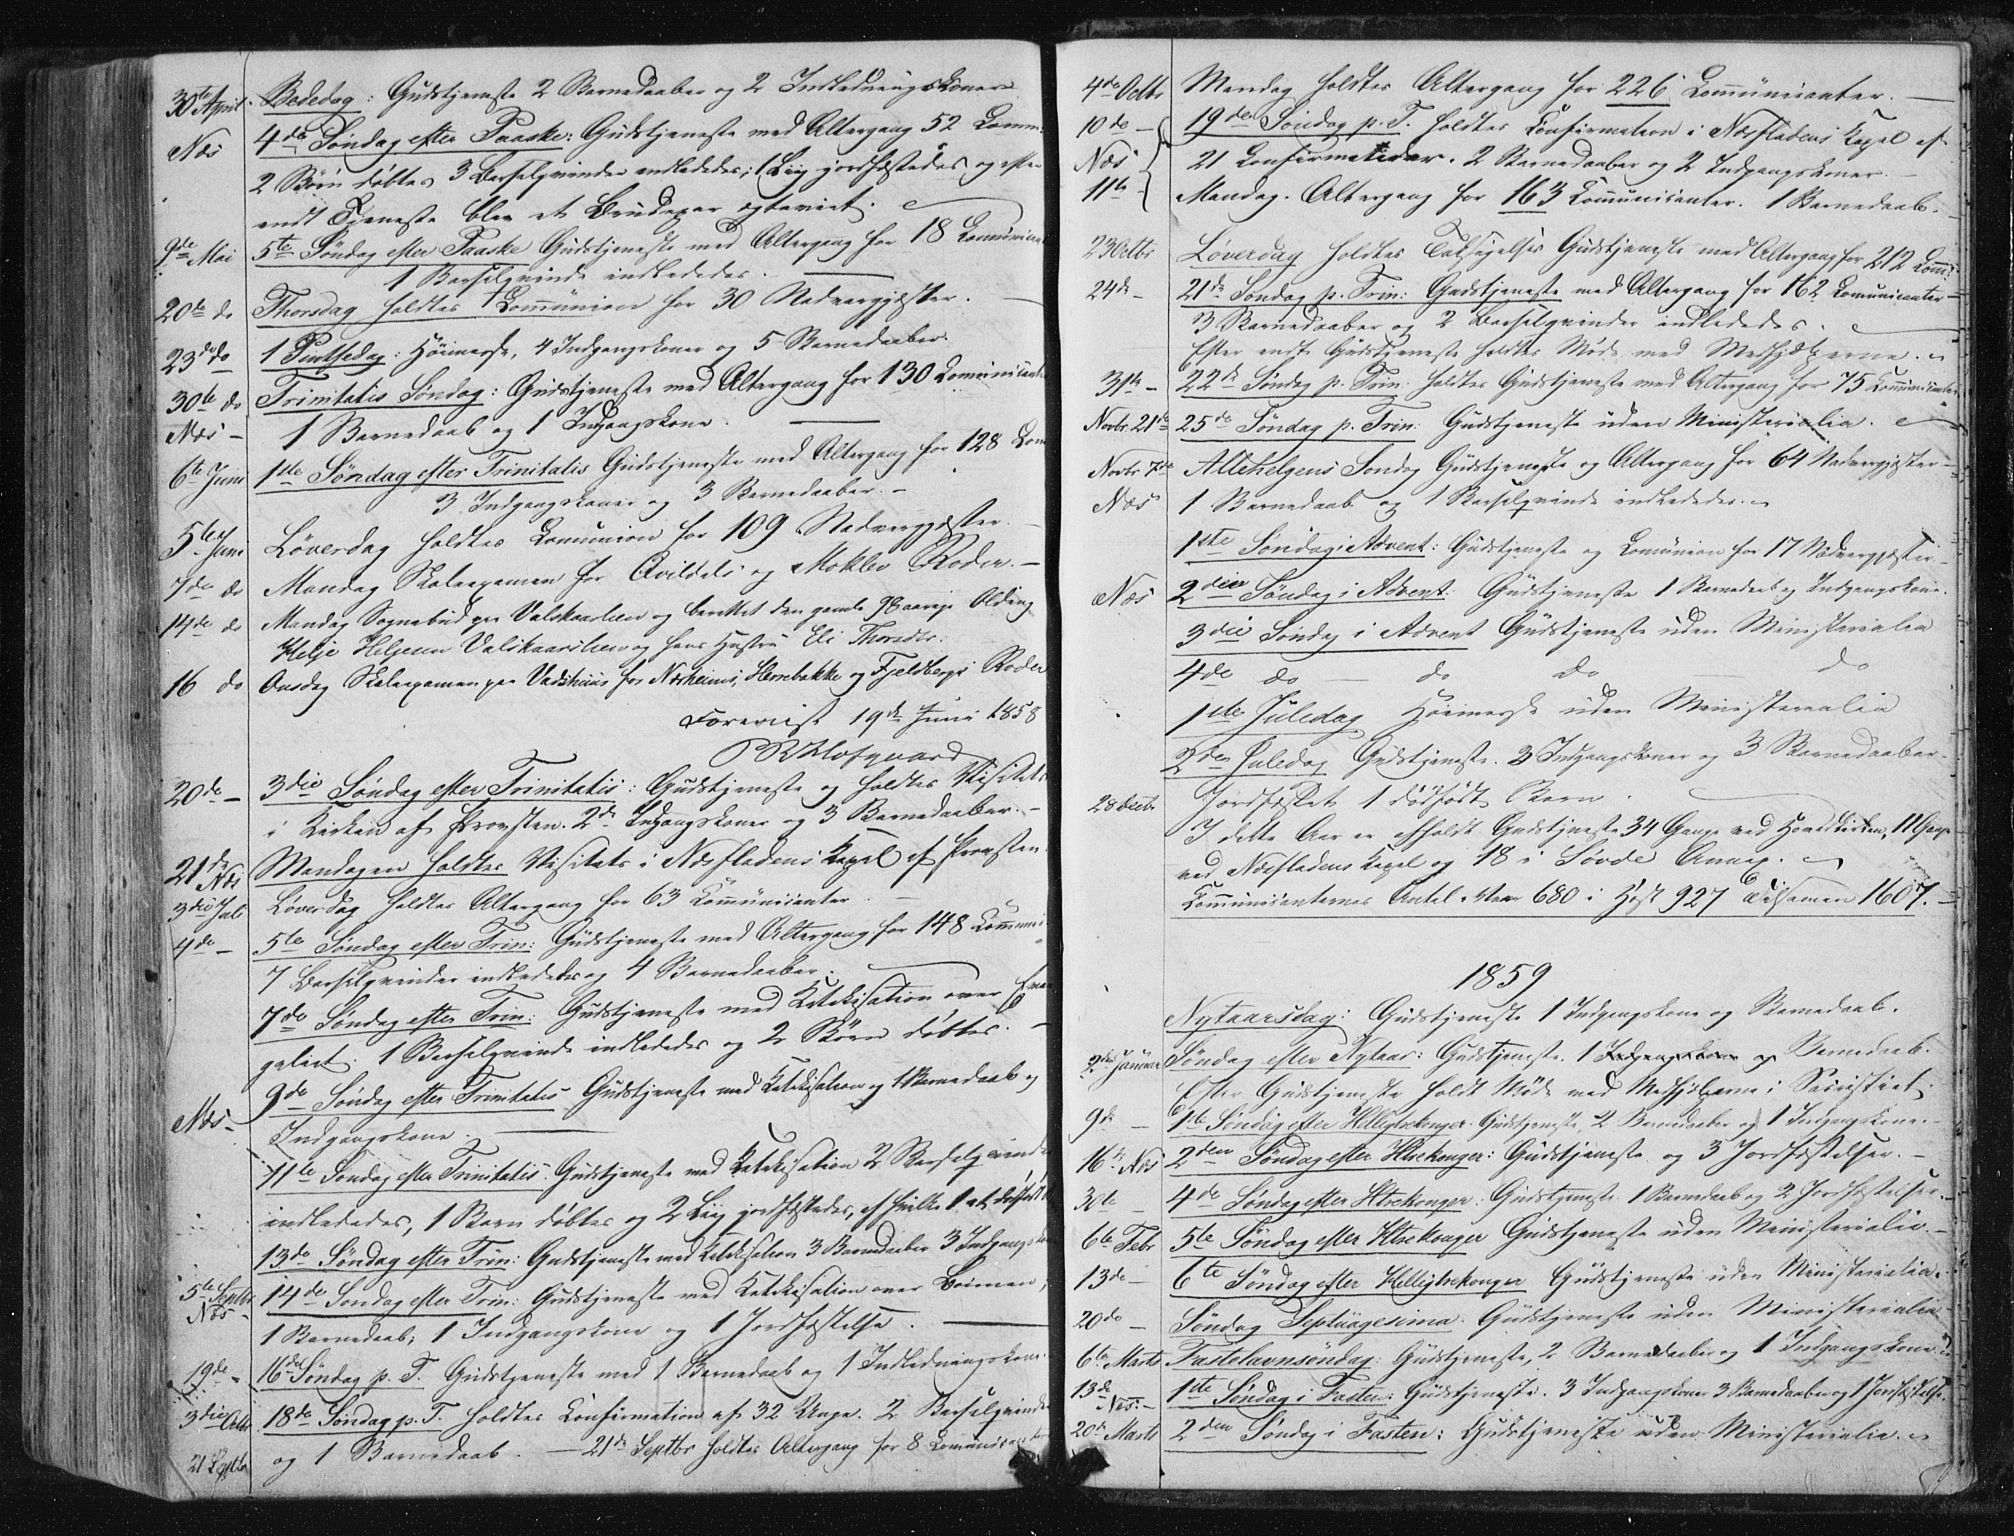 30te April. Bededag: Gudstjeneste 2 Barnedaaber og 2 Indledningskoner
Næs 4de Søndag efter Paaske: Gudstjeneste med Altergang 52 Comm:
2 Børn døbtes 3 Barselqvinder indledede; 1 Liig jordfæstedes og efter
endt Tjeneste blev et Brudepar egteviet.
9de Mai 5te Søndag efter Paaske Gudstjeneste med Altergang for 18 Communican
1 Barselqvinde indlededes.
20de do Thorsdag holdtes Communion for 30 Nadvergjæster.
23de do 1 Pintsedag: Høimesse, 4 Indgangskoner og 5 Barnedaaber.
30te do Trinitatis Søndag: Gudstjeneste med Altergang for 130 Communicanter
Næs - 1 Barnedaab og 1 Indgangskone.
6te Juni 1ste Søndag efter Trinitatis Gudstjeneste med Altergang for 128 Com
3 Indgangskoner og 3 Barnedaaber. -
5te Juni Løverdag holdtes Communion for 109 Nadvergjæster.
7de do Mandag Skoleexamen for Qvildals og Moklev Roder. -
14de do Mandag Sognebud paa Valskaarlien og berettet den gamle 98aarige Olding
Helje Heljesen Valskaarlien og hans Hustru Eli Thorsdtr.
16 do Onsdag Skoleexamen paa Vadshuus for Norheims, Herrebakke og Fjeldbergs Roder
Foreviist 19de Juni 1858
Hofgaard
20de - 3die Søndag efter Trinitatis: Gudstjeneste og holdtes Visitats
i Kirken af Provsten. 2de Indgangskoner og 3 Barnedaaber. -
21de Næs Mandagen holdtes Visitats i Næsfladens Kapel af Provsten.
3die Juli Løverdag holdtes Altergang for 63 Communicanter
4de - 5te Søndag efter Trin: Gudstjeneste med Altergang for 148 Communi
7 Barselqvinder indlededes og 4 Barnedaaber.
7de Søndag efter Trin: Gudstjeneste med Katekisation over Evan
geliet. 1 Barselqvinde indlededes og 2 Børn døbtes. -
Næs - 9de Søndag efter Trinitatis Gudstjeneste med Katekisation og 1 Barnedaab og
Indgangskone.
11te Søndag efter Trinitatis: Gudstjeneste med Katekisation 2 Barselqvinder
indlededes, 1 Barn døbtes og 2 Liig jordfæstedes, af hvilke 1 et dødfødt
13de Søndag efter Trin: Gudstjeneste med Katekisation 3 Barnedaaber 3 Indgangsko
5te Septbr Næs - 14de Søndag efter Trin: Gudstjeneste med Katekisation over
1 Barnedaab, 1 Indgangskone og 1 Jordfæstelse.
19de - 16de Søndag p. T. Gudstjeneste med 1 Barnedaab og 1 Indledningskone.
3die Octbr 18de Søndag p. T. holdtes Confirmation af 32 Unge. 2 Barselqvinder
21 Septbr og 1 Barnedaab. - 21de Septbr holdtes Altergang for 8 Communicanter
4de Octbr Mandag holdtes Altergang for 226 Communicanter. -
10de - 19de Søndag p. T. holdtes Confirmation i Næsfladens Kapel af
Næs 21 Confirmatider. 2 Barnedaaber og 2 Indgangskoner. -
11te Mandag. Altergang for 163 Communicanter. 1 Barnedaab. -
23 Octbr Løverdag holdtes Taksigelses Gudstjeneste med Altergang for 212 Comm:
24de - 21de Søndag p. Trin: Gudstjeneste med Altergang for 162 Communicanter -
3 Barnedaaber og 2 Barselqvinder indlededes.
Efter endt Gudstjeneste holdtes Møde med Medhjælperne.
31te - 22de Søndag p. Trin: holdtes Gudstjeneste med Altergang for 75 Communicanter.
Novbr 21de 25de Søndag p. Trin: Gudstjeneste uden Ministerialia.
Novbr 7de Allehelgens Søndag Gudstjeneste og Altergang for 64 Nadvergjæster -
Næs 1 Barnedaab og 1 Barselqvinde indlededes.
1ste Søndag i Advent: Gudstjeneste og Communion for 17 Nadvergjæster.
Næs 2den Søndag i Advent: Gudstjeneste 1 Barnedaab og Indgangskone.
3die Søndag i Advent Gudstjeneste uden Ministerialia
4de do - do do - do
1ste Juledag Høimesse uden Ministerialia
2den Juledag Gudstjeneste. 3 Indgangskoner og 3 Barnedaaber.
28 Decbr Jordfæstet 1 dødfødt Barn.
I dette Aar er afholdt Gudstjeneste 34 Gange ved Hovedkirken, 11 Gange
ved Næsfladens Kapel og 18 i Søvde Annex.
Communicanternes Antal Vaar 680 i Høst 927 Tilsammen 1607. -
1859
Nytaarsdag: Gudstjeneste 1 Indgangskone og Barnedaab.
2den Januar Søndag efter Nytaar: Gudstjeneste. 1 Indgangskone og Barnedaab.
Efter Gudstjeneste holdt Møde med Medhjælperne i Sacristiet.
9de - 1ste Søndag efter Helligtrekonger. Gudstjeneste, 2 Barnedaaber og 1 Indgangskone. -
16de Næs 2den Søndag efter Htrekonger: Gudstjeneste og 3 Jordfæstelser. -
30te - 4de Søndag efter Htrekonger: Gudstjeneste 1 Barnedaab og 2 Jordfæstelser. -
6te Febr 5te Søndag efter Htrekonger Gudstjeneste uden Ministerialia. -
13de - 6te Søndag efter Helligtrekonger Gudstjeneste uden Ministerialia.
20de - Søndag Septuagesima. Gudstjeneste uden Ministerialia
6te Marts Fastelavnsøndag: Gudstjeneste, 2 Barnedaaber og 1 Indgangskone.
13de Næs. - 1ste Søndag i Fasten: Gudstjeneste. 3 Indgangskoner 3 Barnedaaber og 1 Jordfæstelse.
20de Marts 2den Søndag i Fasten: Gudstjeneste uden Ministerialia.